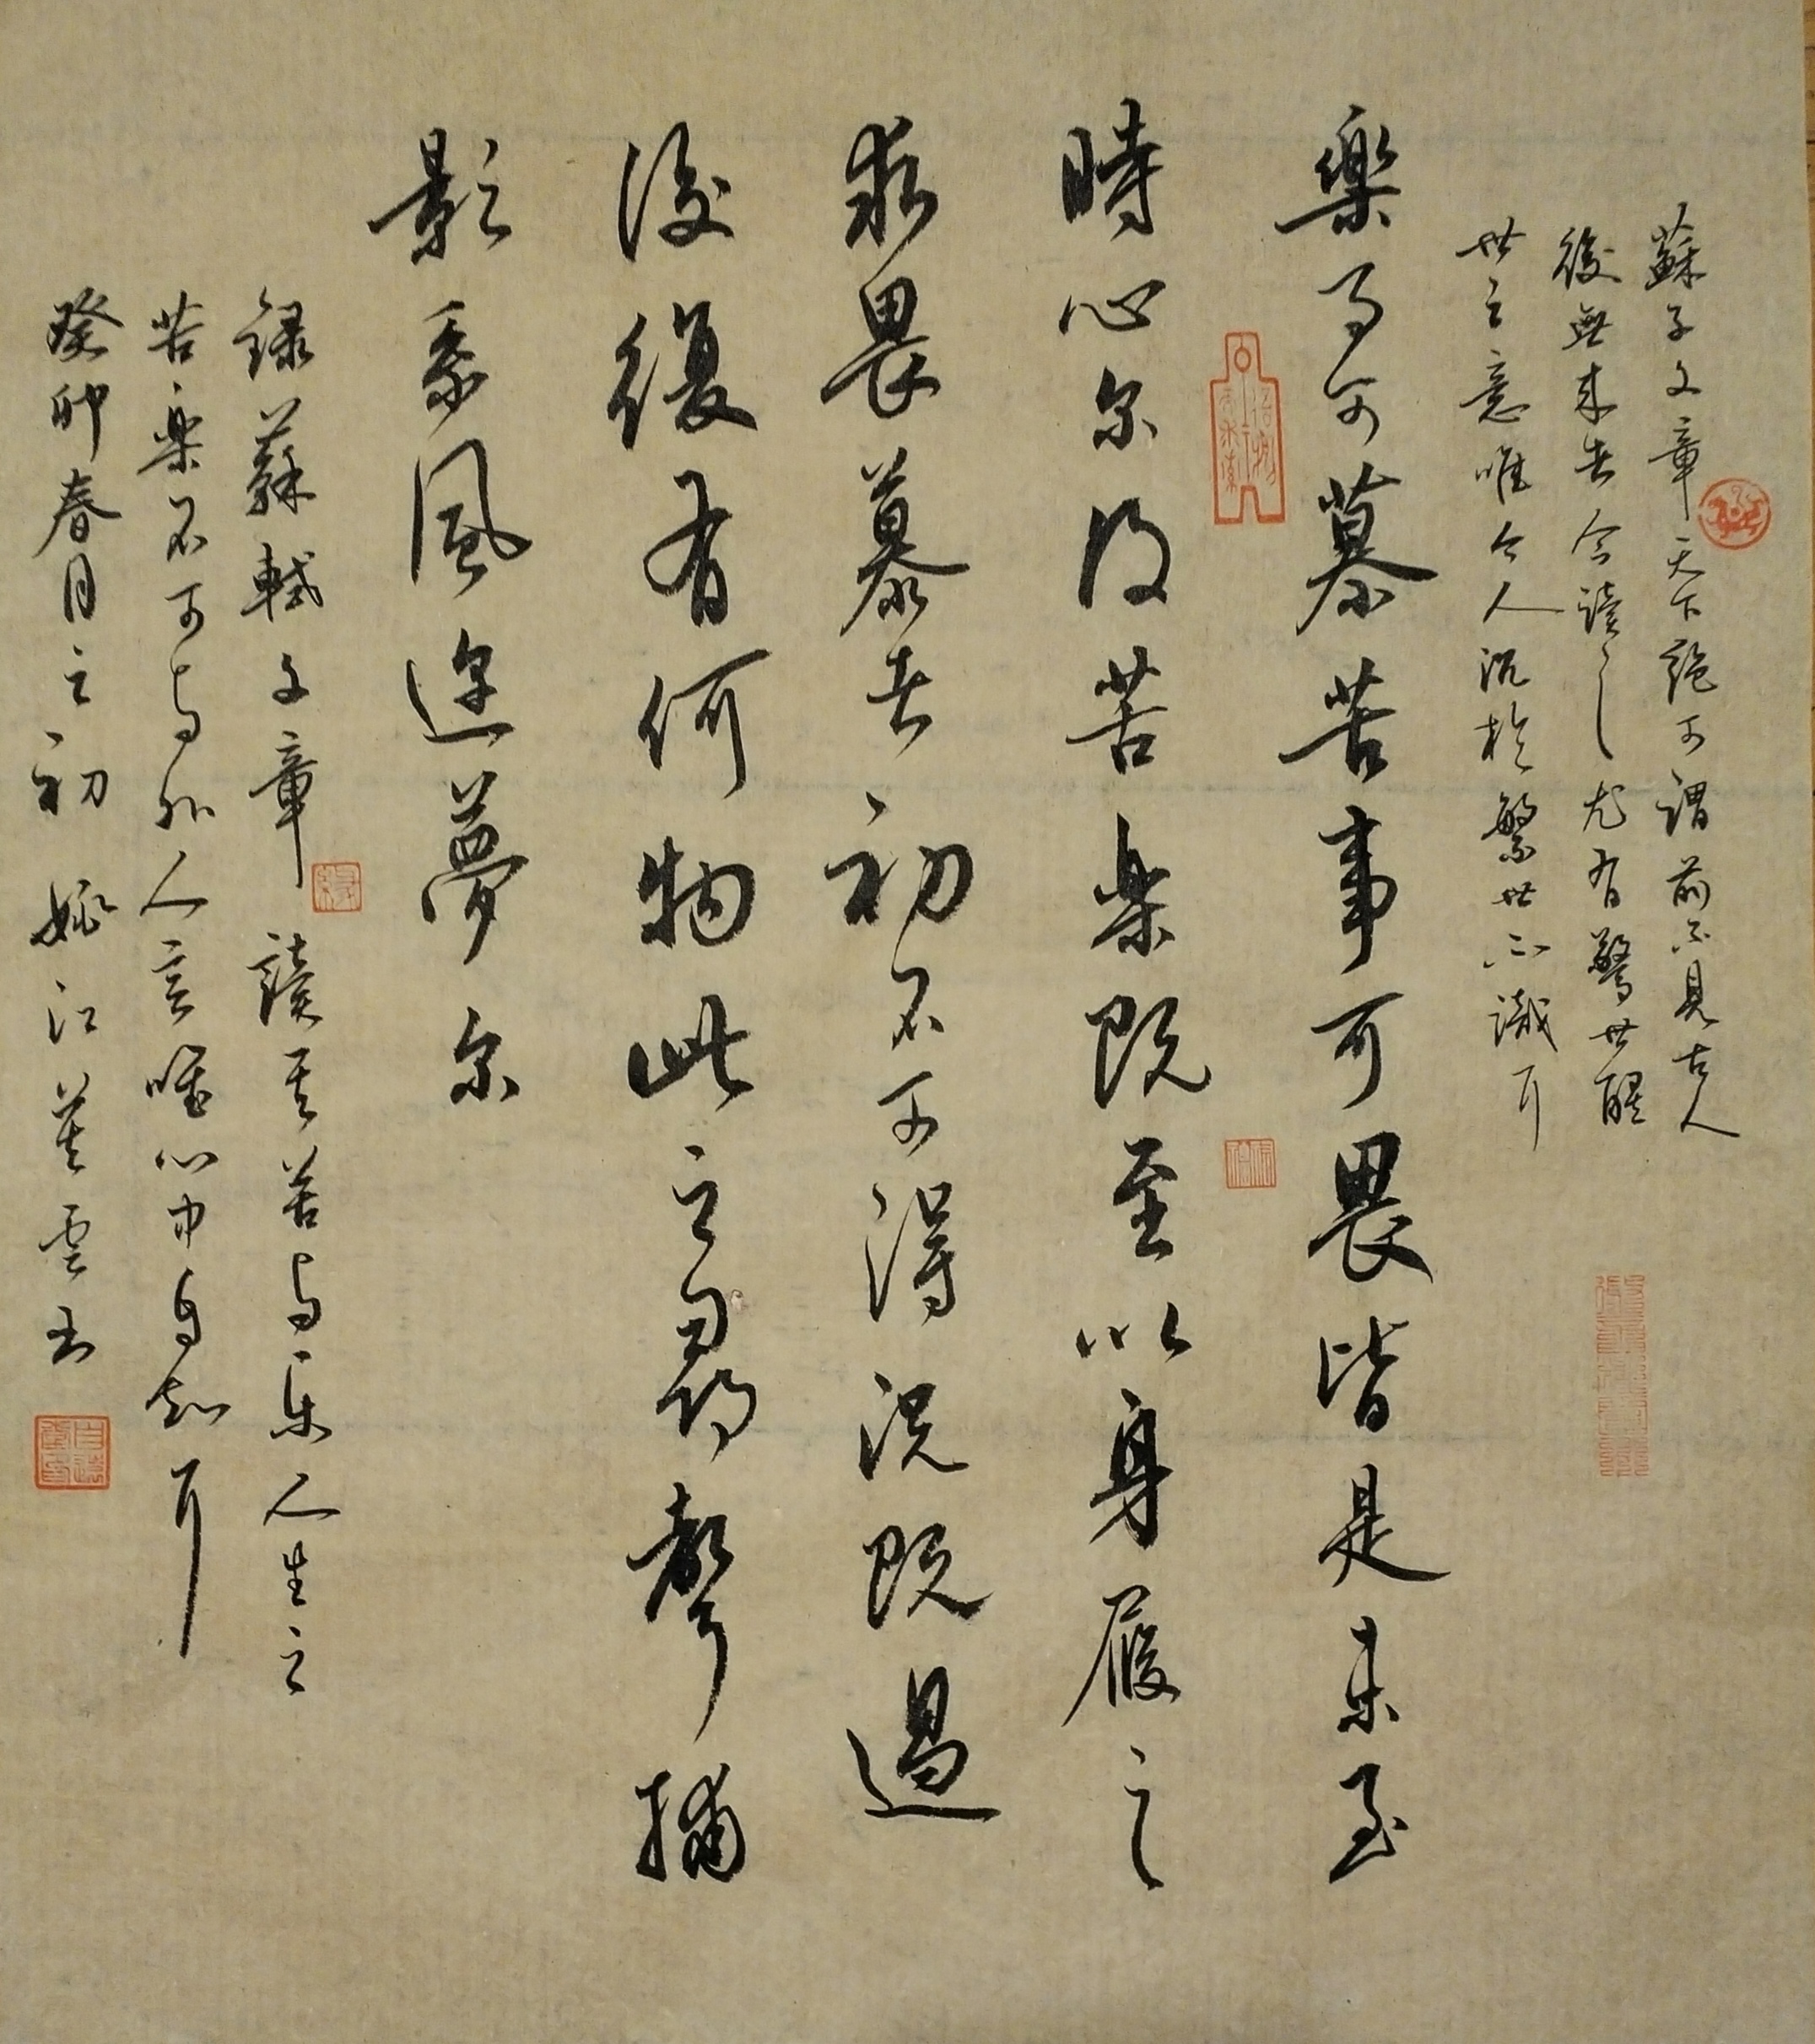 蘇子文章天下絕可謂前不見古人
後無來者今讀之尤有驚世醒
世之意唯今人沉於繁世不識耳
樂事可慕苦事可畏皆是未至
時心尔及苦樂既至以身履之
求畏慕者初不可得況既過
後復有何物比之尋聲捕
影系風迹夢尔
錄蘇軾文章讀其苦與樂人生之
苦樂不可與外人言唯心中自知耳
癸卯春月之初姚江葉雲書